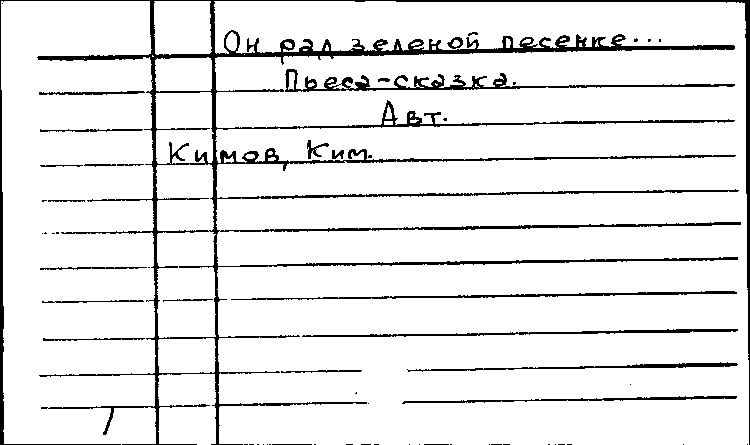 Он рад зеленой песенке...
Пьеса-сказка.
Авт.
Кимов, Ким.